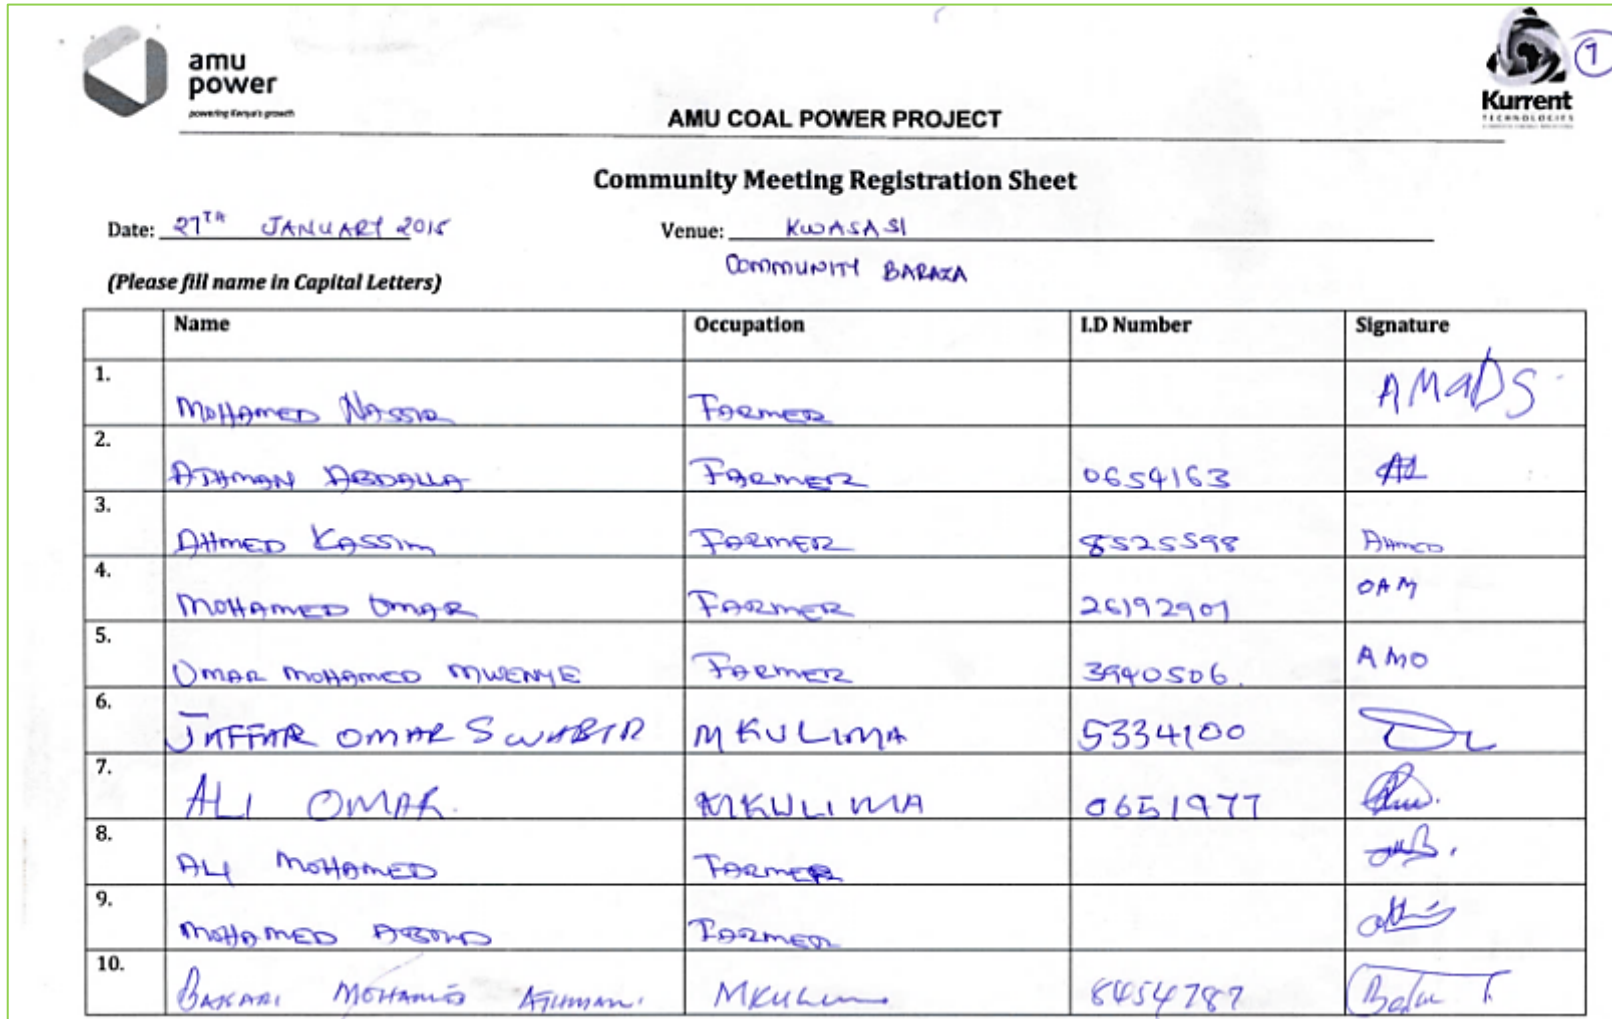 amu
power
powering Kenya's growth
1
Kurrent
TECHNOLOGIES
AMU COAL POWER PROJECT
Community Meeting Registration Sheet
Date: 27TH JANUARY 2015 Venue: KWASASI
COMMUNITY BARAZA
(Please fill name in Capital Letters)
Name Occupation I.D Number Signature
1. MOHAMED NASSIR FARMER AMADS
2. ATHMAN ABDALLA FARMER 0654163
3. AHMED KASSIM FARMER 8525598 AHMED
4. MOHAMED OMAR FARMER 26192901 OAM
5. OMAR MOHAMED MWENYE FARMER 3940506. AMO
6. JAFFAR OMAR SWABIR MKULIMA 5334100
7. ALI OMAR. MKULIMA 0651977
8. ALI MOHAMED FARMER
9. MOHAMED ABOUD FARMER
10. BAKARI MOHAMED ATHMAN. MKULIMA